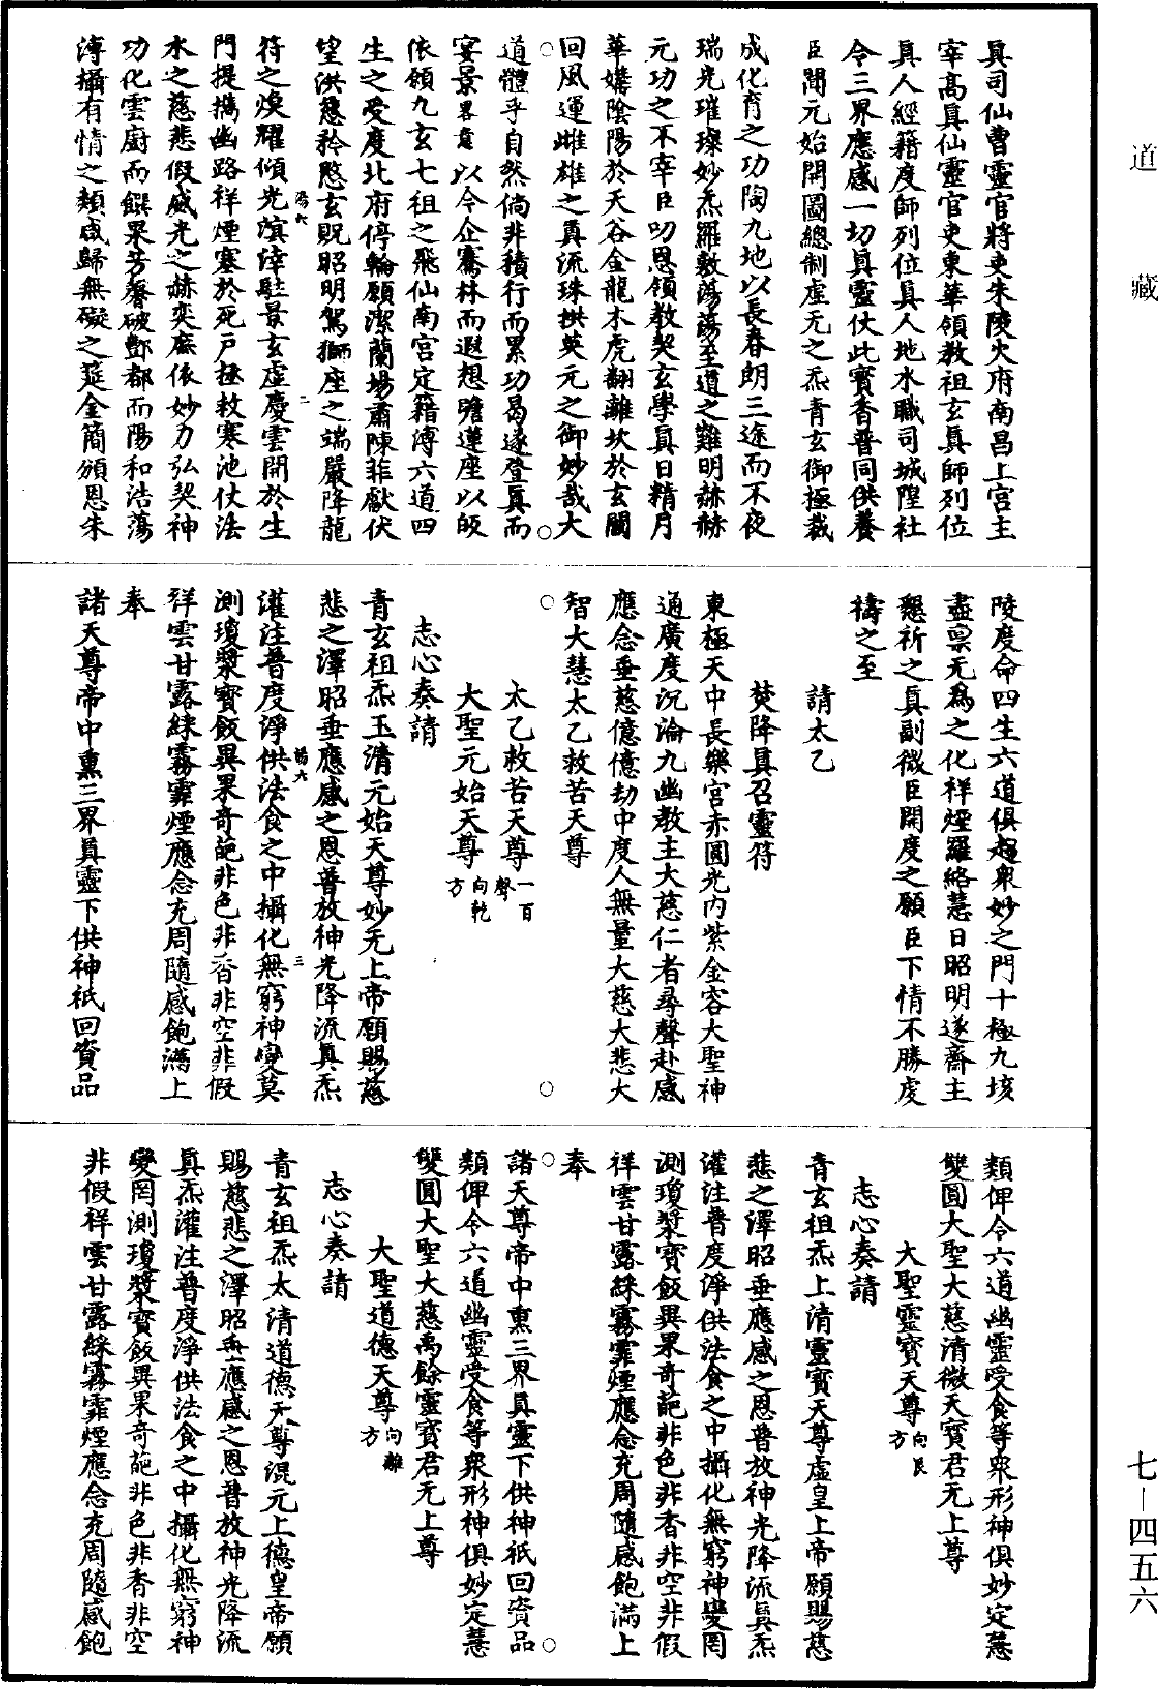 道藏
真司仙曹靈官將吏朱陵火府南昌上宮主
宰高真仙靈官吏東華領教祖玄真師列位
真人經籍度師列位真人地水職司城隍社
令三界應感一切真靈仗此寶香普同供養
臣聞元始開圖總制虛无之炁青玄御極裁
成化育之功陶九地以長春朗三途而不夜
瑞光璀璨妙炁羅敷蕩蕩至道之難明赫赫
元功之不宰臣叨恩領教契玄學真日精月
華媾陰陽於天谷金龍木虎翻離坎於玄關
回風運雌雄之真流珠拱英元之御妙哉大
道體乎自然倘非積行而累功曷遂登真而
宴景畧意以今企騫林而遐想瞻蓮座以皈
依願九玄七祖之飛仙南宮定籍溥六道四
生之受度北府停輪願潔蘭場肅陳菲獻伏
望洪慈矜愍玄貺昭明駕獅座之端嚴降龍
符之煥耀傾光流渧駐景玄虛慶雲開於生
門提攜幽路祥煙塞於死戶拯救寒池仗法
水之慈悲假威光之赫奕庶依妙力弘契神
功化雲廚而饌果芳馨破酆都而陽和浩蕩
溥攝有情之類咸歸無礙之筵金簡頒恩朱
陵度命四生六道俱超衆妙之門十極九垓
盡禀无為之化祥煙羅絡慧日昭明遂齋主
懇祈之真副微臣開度之願臣下情不勝虔
禱之至
請太乙
焚降真召靈符
東極天中長樂宮赤圓光內紫金容大聖神
通廣度沉淪九幽教主大慈仁者尋聲赴感
應念垂慈億億劫中度人無量大慈大悲大
智大慧太乙救苦天尊
太乙救苦天尊一百聲
大聖元始天尊向乾方
志心奏請
青玄祖炁玉清元始天尊妙无上帝願賜慈
悲之澤昭垂應感之恩普放神光降流真炁
灌注普度淨供法食之中攝化無窮神變莫
測瓊漿寶飯異果奇葩非色非香非空非假
祥雲甘露綵霧霏煙應念充周隨感飽滿上
奉
諸天尊帝中熏三界真靈下供神祇回資品
類俾令六道幽靈受食等衆形神俱妙定慧
雙圓大聖大慈清微天寶君无上尊
大聖靈寶天尊向艮方
志心奏請
青玄祖炁上清靈寶天尊虛皇上帝願賜慈
悲之澤昭垂應感之恩普放神光降流真炁
灌注普度淨供法食之中攝化無窮神變罔
測瓊漿寶飯異果奇葩非色非香非空非假
祥雲甘露綵霧霏煙應念充周隨感飽滿上
奉
諸天尊帝中熏三界真靈下供神祇回資品
類俾令六道幽靈受食等衆形神俱妙定慧
雙圓大聖大慈禹餘靈寶君无上尊
大聖道德天尊向離方
志心奏請
青玄祖炁太清道德天尊混元上德皇帝願
賜慈悲之澤昭垂應感之恩普放神光降流
真炁灌注普度淨供法食之中攝化無窮神
變罔測瓊漿寶飯異果奇葩非色非香非空
非假祥雲甘露綵霧霏煙應念充周隨感飽
七—四五六